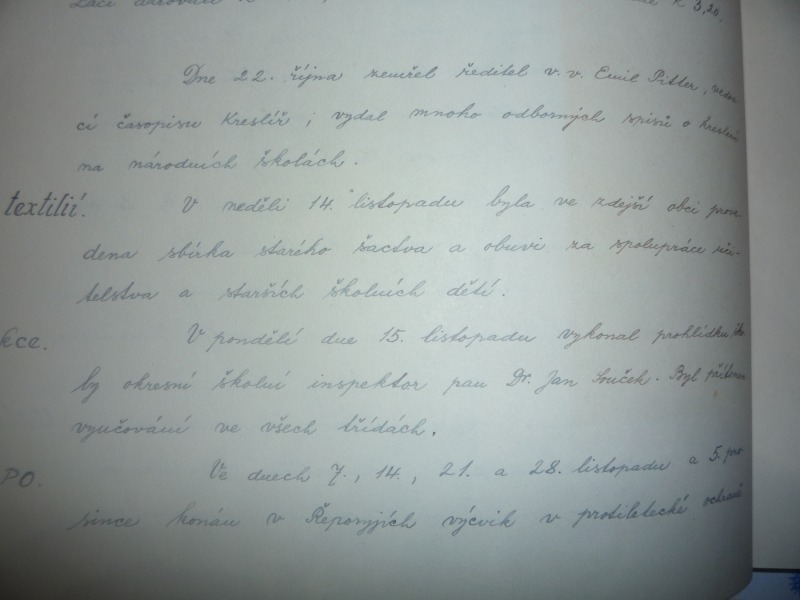 žáci darovali K K 3,20.
Dne 22. října zemřel ředitel v. v. Emil Pitter, vedou-
cí časopisu Kreslíř; vydal mnoho odborných spisů o kreslení
na národních školách.
textilií. V neděli 14. listopadu byla ve zdejší obci prove-
dena sbírka starého šactva a obuvi za spolupráce uči-
telstva a starších školních dětí.
kce. V pondělí dne 15. listopadu vykonal prohlídku ško-
ly okresní školní inspektor pan Dr. Jan Souček. Byl přítomen
vyučování ve všech třídách.
PO. Ve dnech 7., 14., 21. a 28. listopadu a 5. pro-
since konán v Řeporyjích výcvik v protiletecké ochraně